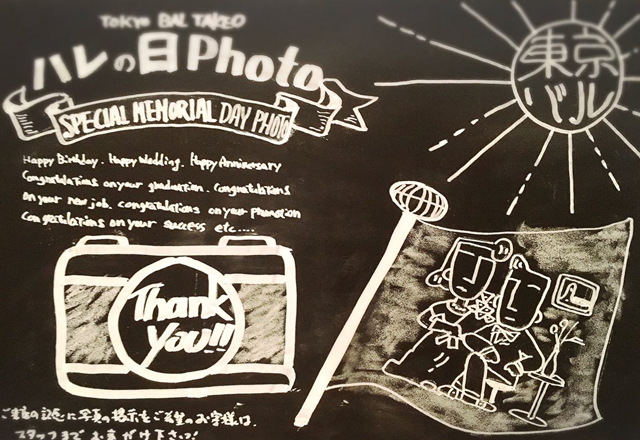 TOKYO BAL TAKEO
ハレの日Photo
SPECIAL MEMORIAL DAY PHOTO
東京
バル
Happy Birthday. Happy Wedding. Happy Anniversary
Congratulations on your graduation. Congratulations
on your new job. congratulations on your promotion
Congratulations on your success etc....
Thank
You!!
の記念に写真の掲示をご希望のお客様は、
スタッフまでお声がけ下さい!